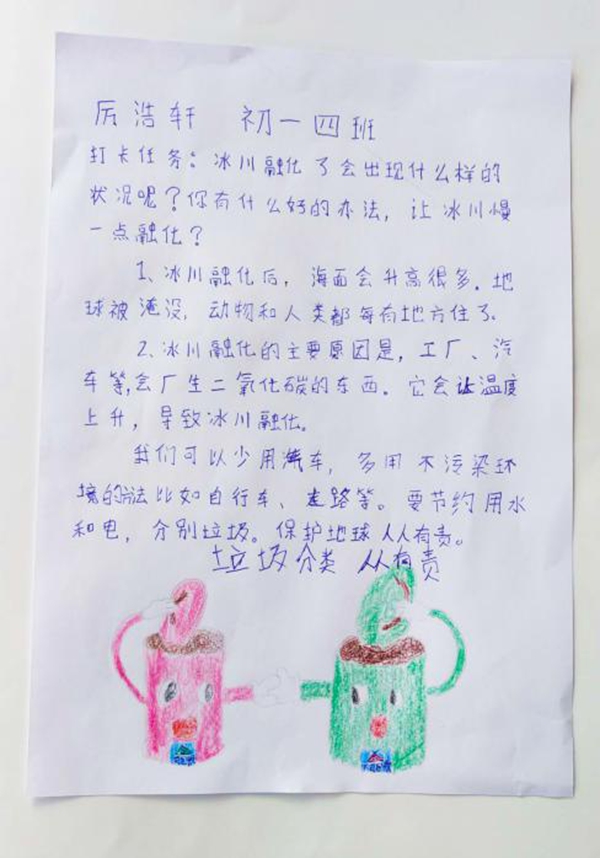 厉浩轩 初一四班
打卡任务：冰川融化了会出现什么样的
状况呢？你有什么好的办法，让冰川慢
一点融化？
1、冰川融化后，海面会升高很多。地
球被淹没，动物和人类都每有地方住了。
2、冰川融化的主要原因是，工厂、汽
车等，会厂生二氧化碳的东西。它会让温度
上升，导致冰川融化。
我们可以少用汽车，多用不污染环
境的方法比如自行车、走路等。要节约用水
和电，分别垃圾。保护地球人人有责。
垃圾分类 人人有责